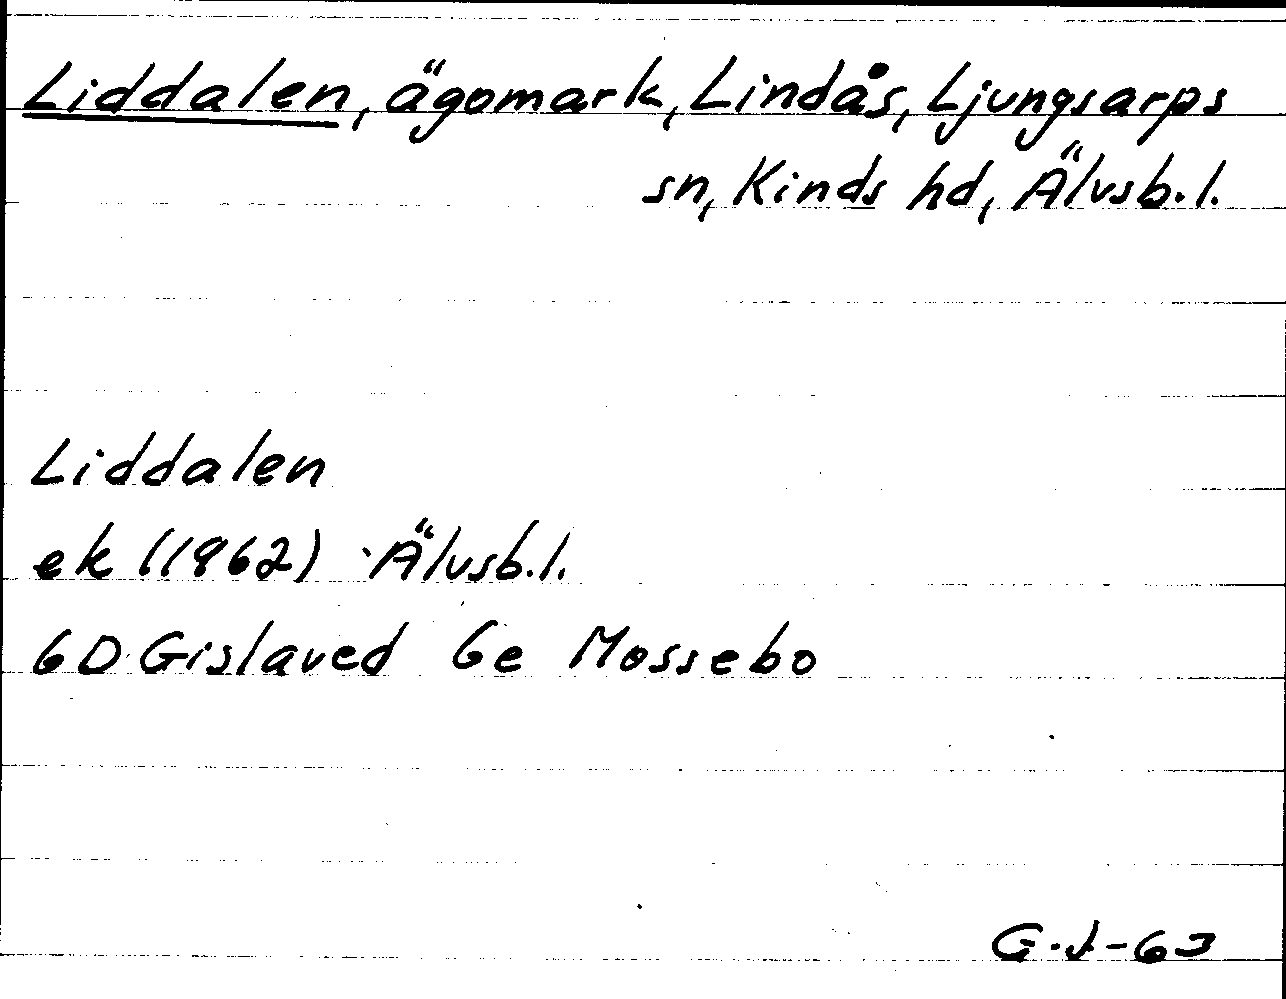 Liddalen, ägomark, Lindås, Ljungsarps
sn, Kinds hd, Älvsb.l.
Liddalen
ek (1962) Älvsb.l.
6D Gislaved 6e Mossebo
G.J-63